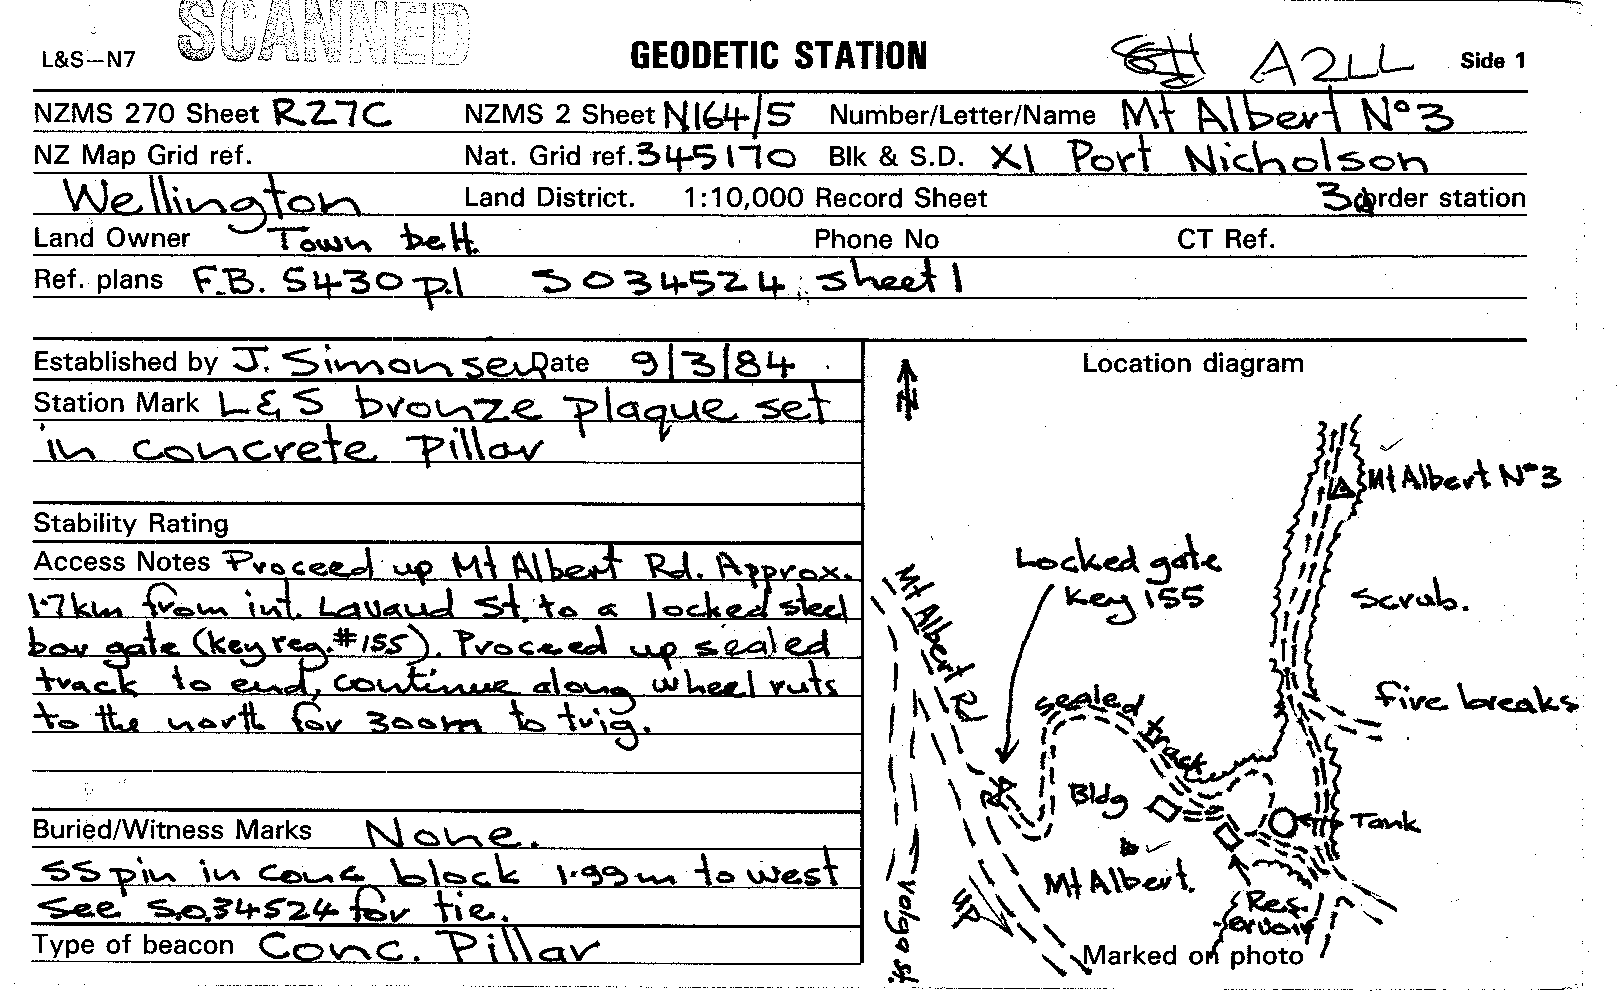 SCANNED
L&S–N7
GEODETIC STATION
A2LL
Side 1
NZMS 270 Sheet R27C NZMS 2 Sheet N164/5 Number/Letter/Name Mt Albert Nº3
NZ Map Grid ref. Nat. Grid ref. 345170 Blk & S.D. XI Port Nicholson
Wellington Land District. 1:10,000 Record Sheet 3d order station
Land Owner Town belt. Phone No CT Ref.
Ref. plans F.B. 5430 p.1 SO 34524, sheet 1
Established by J. Simonsen Date 9/3/84
Station Mark L&S bronze plaque set
in concrete pillar
Stability Rating
Access Notes Proceed up Mt Albert Rd. Approx.
1.7km from int. Lavaud St. to a locked steel
bar gate (key reg.#155). Proceed up sealed
track to end, continue along wheel ruts
to the north for 300m to trig.
Buried/Witness Marks None.
SS pin in conc block 1.99m to west
See S.O.34524 for tie.
Type of beacon Conc. Pillar
Location diagram
N
Mt Albert Nº3
Locked gate
key 155
Scrub.
Mt Albert Rd
sealed track
five breaks
Bldg
Tank
Mt Albert.
UP
Res-
ervoir
Volga St.
Marked on photo